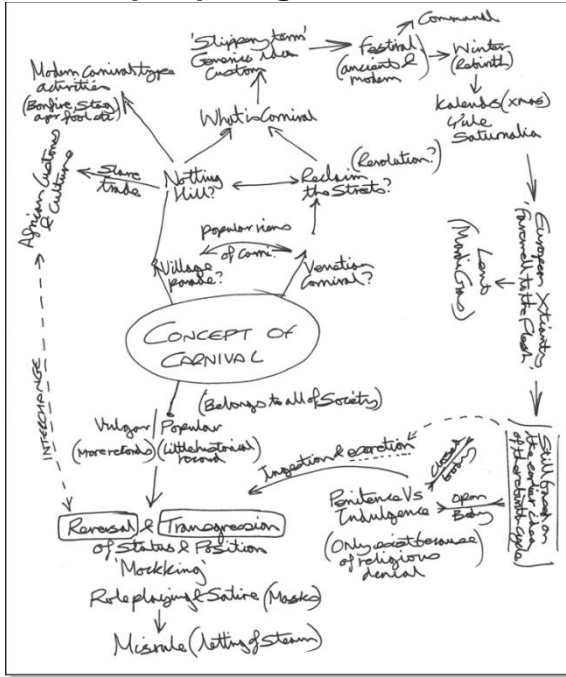 Command
'Slippery term'
Generics idea
Custom
Festival
(ancients &
modern)
Winter
(Rebirth)
Kalends (xmas)
Yule
Saturnalia
Modern Carnival type
activities
(Bonfire, Stag,
apr fool etc
What is Carnival
African Customs
& Culture
Slave
trade
Notting
Hill?
Reclaim
the Streets?
(Revolution?)
popular views
of carni.
Village
parade?
Venetian
Carnival?
European Xtianity
'Farewell to the Flesh'
Lent
(Mardi Gras)
CONCEPT OF
CARNIVAL
INTERCHANGE
(Belongs to all of Society)
Vulgar
(More records)
Popular
(Little historical
record)
Ingestion & excretion
Closed
Body
Open
Body
Penitence Vs
Indulgence
(Only exist because
of religious
denial
Still based on
the earlier idea
of the rebirth cycle
Reversal & Transgression
of Status & Position
'Mockking'
Roleplaying & Satire (Masks)
Misrule (letting of Steam)